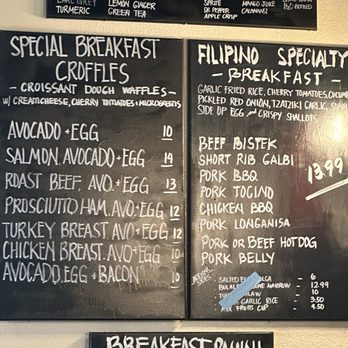 EARL GREY
TURMERIC
LEMON GINGER
GREEN TEA
SPRITE
DR PEPPER
APPLE CRISP
MANGO JUICE
CALAMANSI
SPECIAL BREAKFAST
CROFFLES
- CROISSANT DOUGH WAFFLES -
W/ CREAMCHEESE, CHERRY TOMATOES + MICROGREENS
AVOCADO + EGG 10
SALMON. AVOCADO + EGG 14
ROAST BEEF, AVO. + EGG 13
PROSCIUTTO HAM. AVO + EGG 12
TURKEY BREAST AVO + EGG 12
CHICKEN BREAST. AVO + EGG 10
AVOCADO, EGG + BACON 10
FILIPINO SPECIALTY
- BREAKFAST -
GARLIC FRIED RICE, CHERRY TOMATOES,
PICKLED RED ONION, TZATZIKI GARLIC,
SIDE UP EGG CRISPY SHALLOTS
BEEF BISTEK
SHORT RIB GALBI
PORK BBQ
PORK TOCINO
CHICKEN BBQ
PORK LONGANISA
PORK OR BEEF HOTDOG
PORK BELLY
13.99
SALTED EGG - 6
MARROW - 12.99
- 10
GARLIC RICE - 3.50
FRUITS CUP - 4.50
BREAKFAST